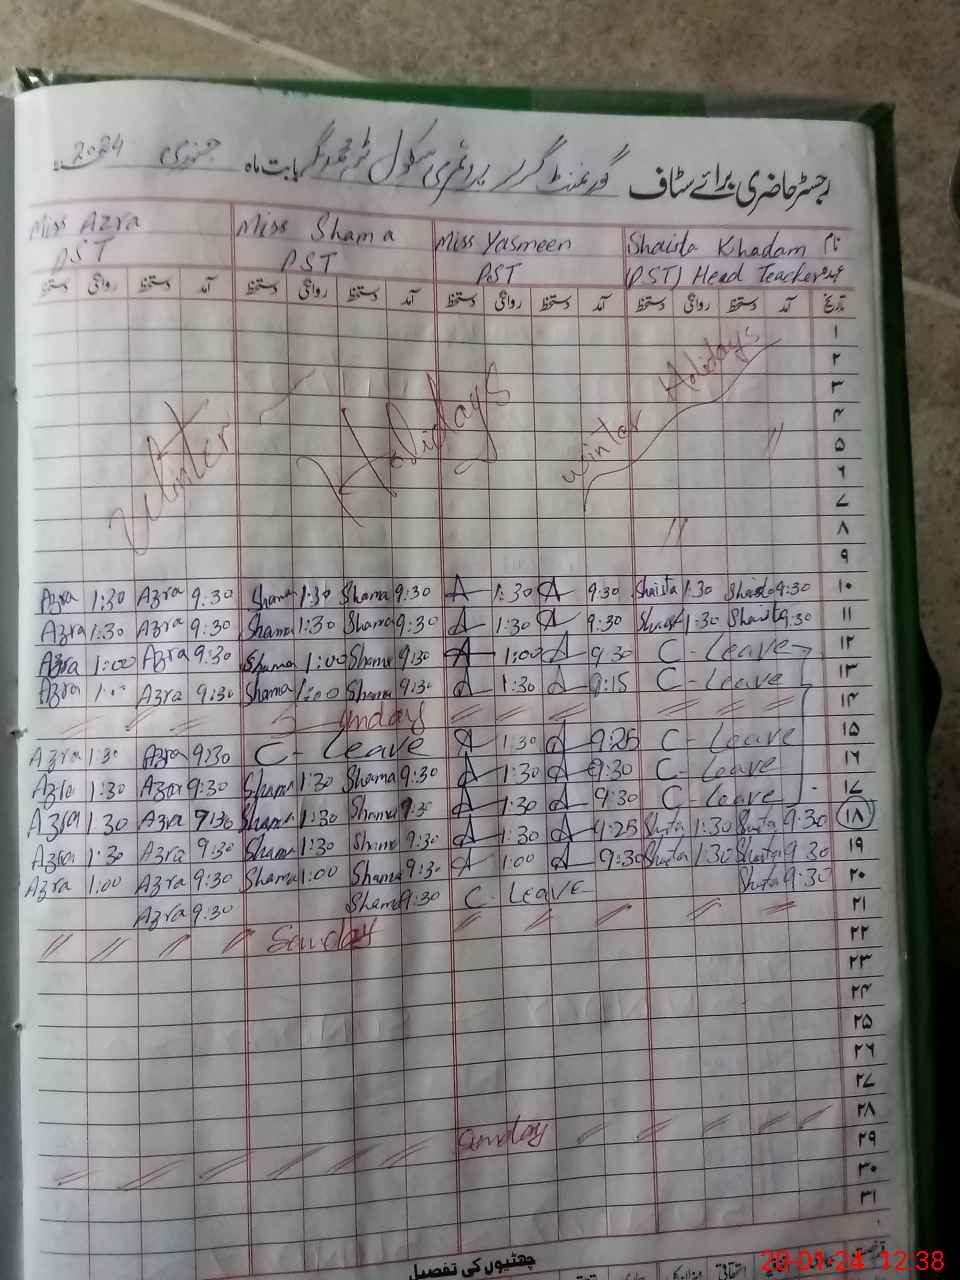 رجسٹر حاضری برائے سٹاف گورنمنٹ گرلز پرائمری سکول بابت ماہ جنوری 2024
نام Shaista Khadam Miss Yasmeen Miss Shama Miss Azra
عہدہ (PST) Head Teacher PST PST PST
تاریخ آمد دستخط روانگی دستخط آمد دستخط روانگی دستخط آمد دستخط روانگی دستخط آمد دستخط روانگی دستخط
۱
۲
۳
۴
۵
۶
۷
۸
۹
Winter Holidays
Winter Holidays
Azra 1:30 Azra 9:30 Shama 1:30 Shama 9:30 A 1:30 A 9:30 Shaista 1:30 Shaista 9:30 ۱۰
Azra 1:30 Azra 9:30 Shama 1:30 Shama 9:30 A 1:30 A 9:30 Shaista 1:30 Shaista 9:30 ۱۱
Azra 1:00 Azra 9:30 Shama 1:00 Shama 9:30 A 1:00 A 9:30 C-Leave ۱۲
Azra Azra 9:30 Shama 1:00 Shama 9:30 A 1:30 A 9:15 C-Leave ۱۳
Sunday ۱۴
Azra 1:30 Azra 9:30 C-Leave A 1:30 A 9:25 C-Leave ۱۵
Azra 1:30 Azra 9:30 Shama 1:30 Shama 9:30 A 1:30 A 9:30 C-Leave ۱۶
Azra 1:30 Azra 9:30 Shama 1:30 Shama 9:30 A 1:30 A 9:30 C-Leave ۱۷
Azra 1:30 Azra 9:30 Shama 1:30 Shama 9:30 A 1:30 A 9:25 Shaista 1:30 Shaista 9:30 ۱۸
Azra 1:00 Azra 9:30 Shama 1:00 Shama 9:30 A 1:00 A 9:30 Shaista 1:30 Shaista 9:30 ۱۹
Azra 9:30 Shama 9:30 C-Leave Shaista 9:30 ۲۰
Sunday ۲۱
۲۲
۲۳
۲۴
۲۵
۲۶
۲۷
Sunday ۲۸
۲۹
۳۰
۳۱
چھٹیوں کی تفصیل
اتفاقی
20-01-24 12:38